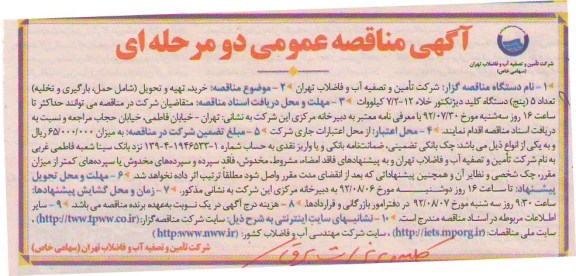 آگهی مناقصه عمومی دو مرحله ای
شرکت تأمین و تصفیه آب و فاضلاب تهران
(سهامی خاص)
۱- نام دستگاه مناقصه گزار: شرکت تأمین و تصفیه آب و فاضلاب تهران ۲- موضوع مناقصه: خرید، تهیه و تحویل (شامل حمل، بارگیری و تخلیه)
تعداد ۵ (پنج) دستگاه کلید دیژنکتور خلاء ۷/۲-۱۲ کیلووات ۳- مهلت و محل دریافت اسناد مناقصه: متقاضیان شرکت در مناقصه می توانند حداکثر تا
ساعت ۱۶ روز سه‌شنبه مورخ ۹۲/۰۷/۳۰ با معرفی نامه معتبر به دبیرخانه مرکزی این شرکت به نشانی: تهران - خیابان فاطمی، خیابان حجاب مراجعه و نسبت به
دریافت اسناد مناقصه اقدام نمایند. ۴- محل اعتبار: از محل اعتبارات جاری شرکت ۵- مبلغ تضمین شرکت در مناقصه: به میزان ۶۵/۰۰۰/۰۰۰ ریال
و به یکی از انواع ذیل می باشد: چک بانکی تضمینی، ضمانتنامه بانکی و یا واریز نقدی به حساب شماره ۱-۱۹۴۶۵۳۳-۴-۱۳۹ نزد بانک سینا شعبه فاطمی غربی
به نام شرکت تأمین و تصفیه آب و فاضلاب تهران و به پیشنهادهای فاقد امضاء، مشروط، مخدوش، فاقد سپرده و سپرده‌های مخدوش یا سپرده‌های کمتر از میزان
مقرر، چک شخصی و نظایر آن و همچنین پیشنهاداتی که بعد از انقضای مدت مقرر واصل شود مطلقاً ترتیب اثر داده نخواهد شد. ۶- مهلت و محل تحویل
پیشنهاد: تا ساعت ۱۶ روز دوشنبه مورخ ۹۲/۰۸/۰۶ به دبیرخانه مرکزی این شرکت به نشانی مذکور. ۷- زمان و محل گشایش پیشنهادها:
ساعت ۹:۳۰ روز سه شنبه مورخ ۹۲/۰۸/۰۷ در دفتر امور بازرگانی و قراردادها ۸- هزینه درج آگهی در یک نوبت به‌عهده برنده مناقصه می باشد. ۹- سایر
اطلاعات مربوطه در اسناد مناقصه مندرج است. ۱۰- نشانیهای سایت اینترنتی به شرح ذیل: سایت شرکت مناقصه‌گزار: (http://www.tpww.co.ir)،
سایت ملی مناقصات: (http://iets.mporg.ir)، سایت شرکت مهندسی آب و فاضلاب کشور: (http:www.nww.ir)
شرکت تأمین و تصفیه آب و فاضلاب تهران (سهامی خاص)